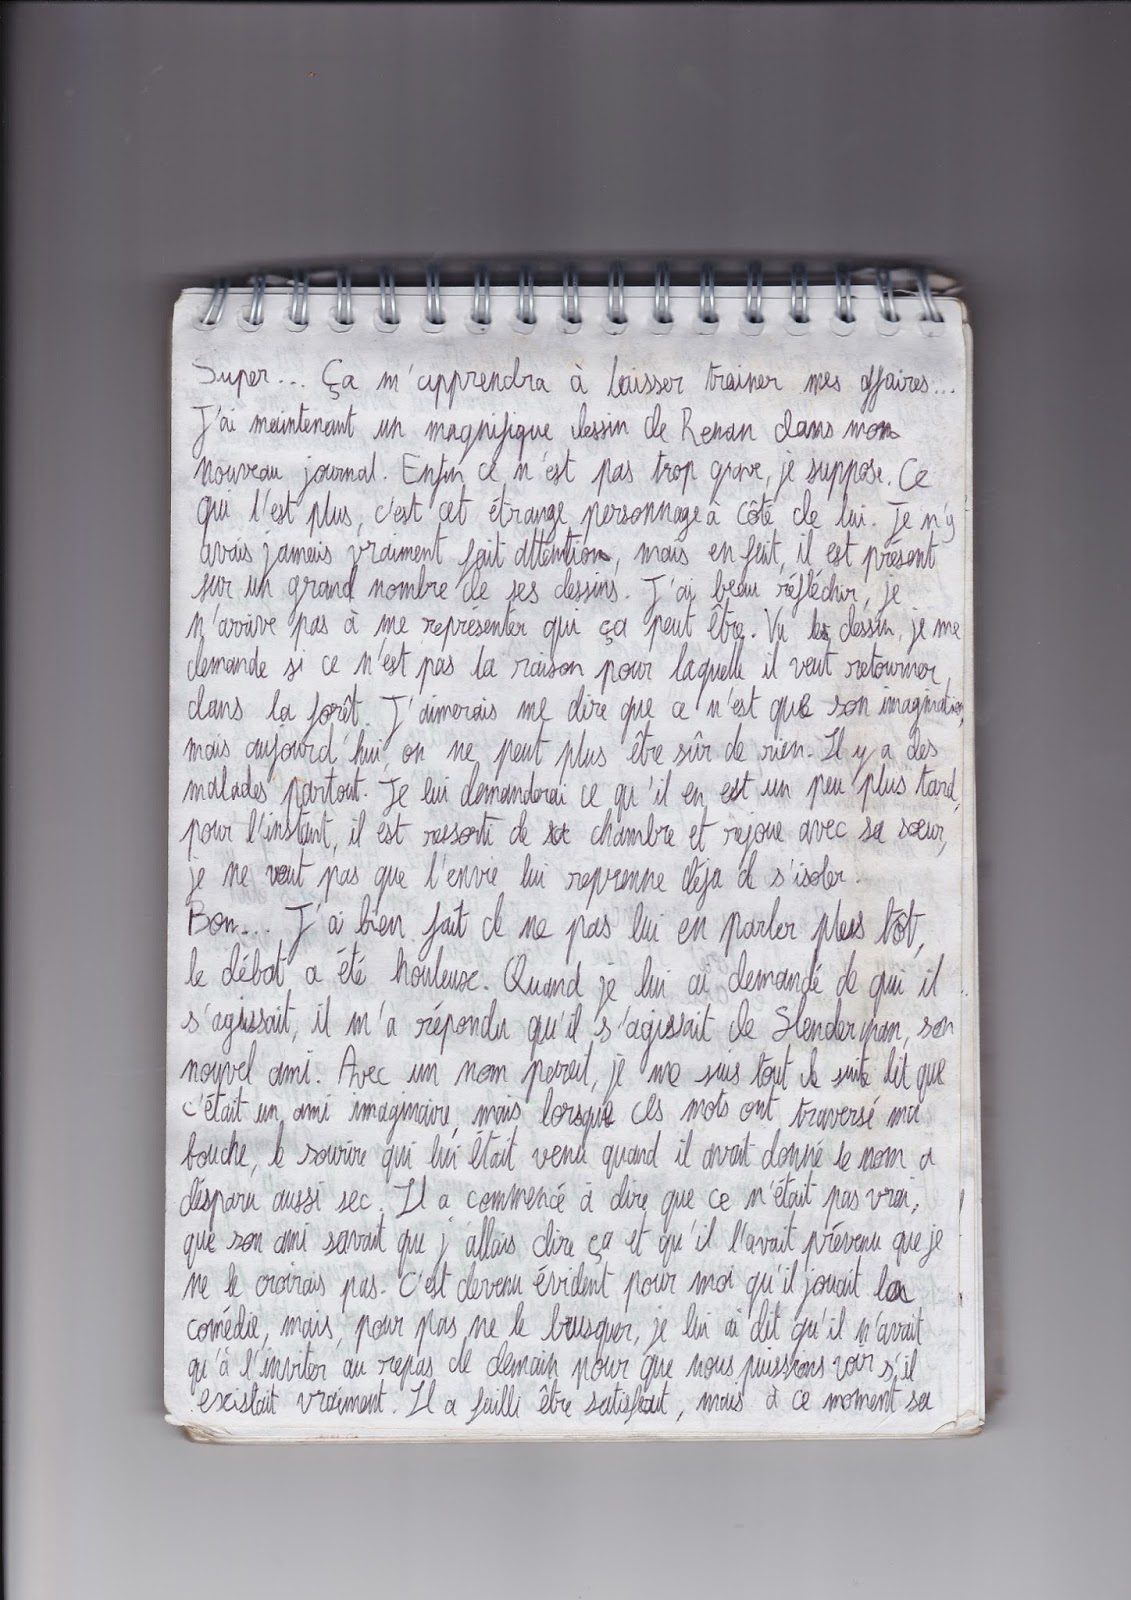 Super... Ça m'apprendra à laisser trainer mes affaires...
J'ai maintenant un magnifique dessin de Renan dans mon
nouveau journal. Enfin ce n'est pas trop grave, je suppose. Ce
qui l'est plus, c'est cet étrange personnage à côté de lui. Je n'y
avais jamais vraiment fait attention, mais en fait, il est présent
sur un grand nombre de ses dessins. J'ai beau réfléchir, je
n'arrive pas à me représenter qui ça peut être. Vu les dessin, je me
demande si ce n'est pas la raison pour laquelle il veut retourner
dans la forêt. J'aimerais me dire que ce n'est que son imagination,
mais aujourd'hui, on ne peut plus être sûr de rien. Il y a des
malades partout. Je lui demanderai ce qu'il en est un peu plus tard,
pour l'instant, il est ressorti de sa chambre et rejoue avec sa sœur,
je ne veut pas que l'envie lui reprenne déjà de s'isoler.
Bon... J'ai bien fait de ne pas lui en parler plus tôt,
le débat a été houleux. Quand je lui ai demandé de qui il
s'agissait, il m'a répondu qu'il s'agissait de Slenderman, son
nouvel ami. Avec un nom pareil, je me suis tout de suite dit que
c'était un ami imaginaire, mais lorsque ces mots ont traversé ma
bouche, le sourire qui lui était venu quand il avait donné le nom a
disparu aussi sec. Il a commencé à dire que ce n'était pas vrai,
que son ami savait que j'allais dire ça et qu'il l'avait prévenu que je
ne le croirais pas. C'est devenu évident pour moi qu'il jouait la
comédie, mais, pour pas ne le brusquer, je lui ai dit qu'il n'avait
qu'à l'inviter au repas de demain pour que nous puissions voir s'il
existait vraiment. Il a failli être satisfait, mais à ce moment sa